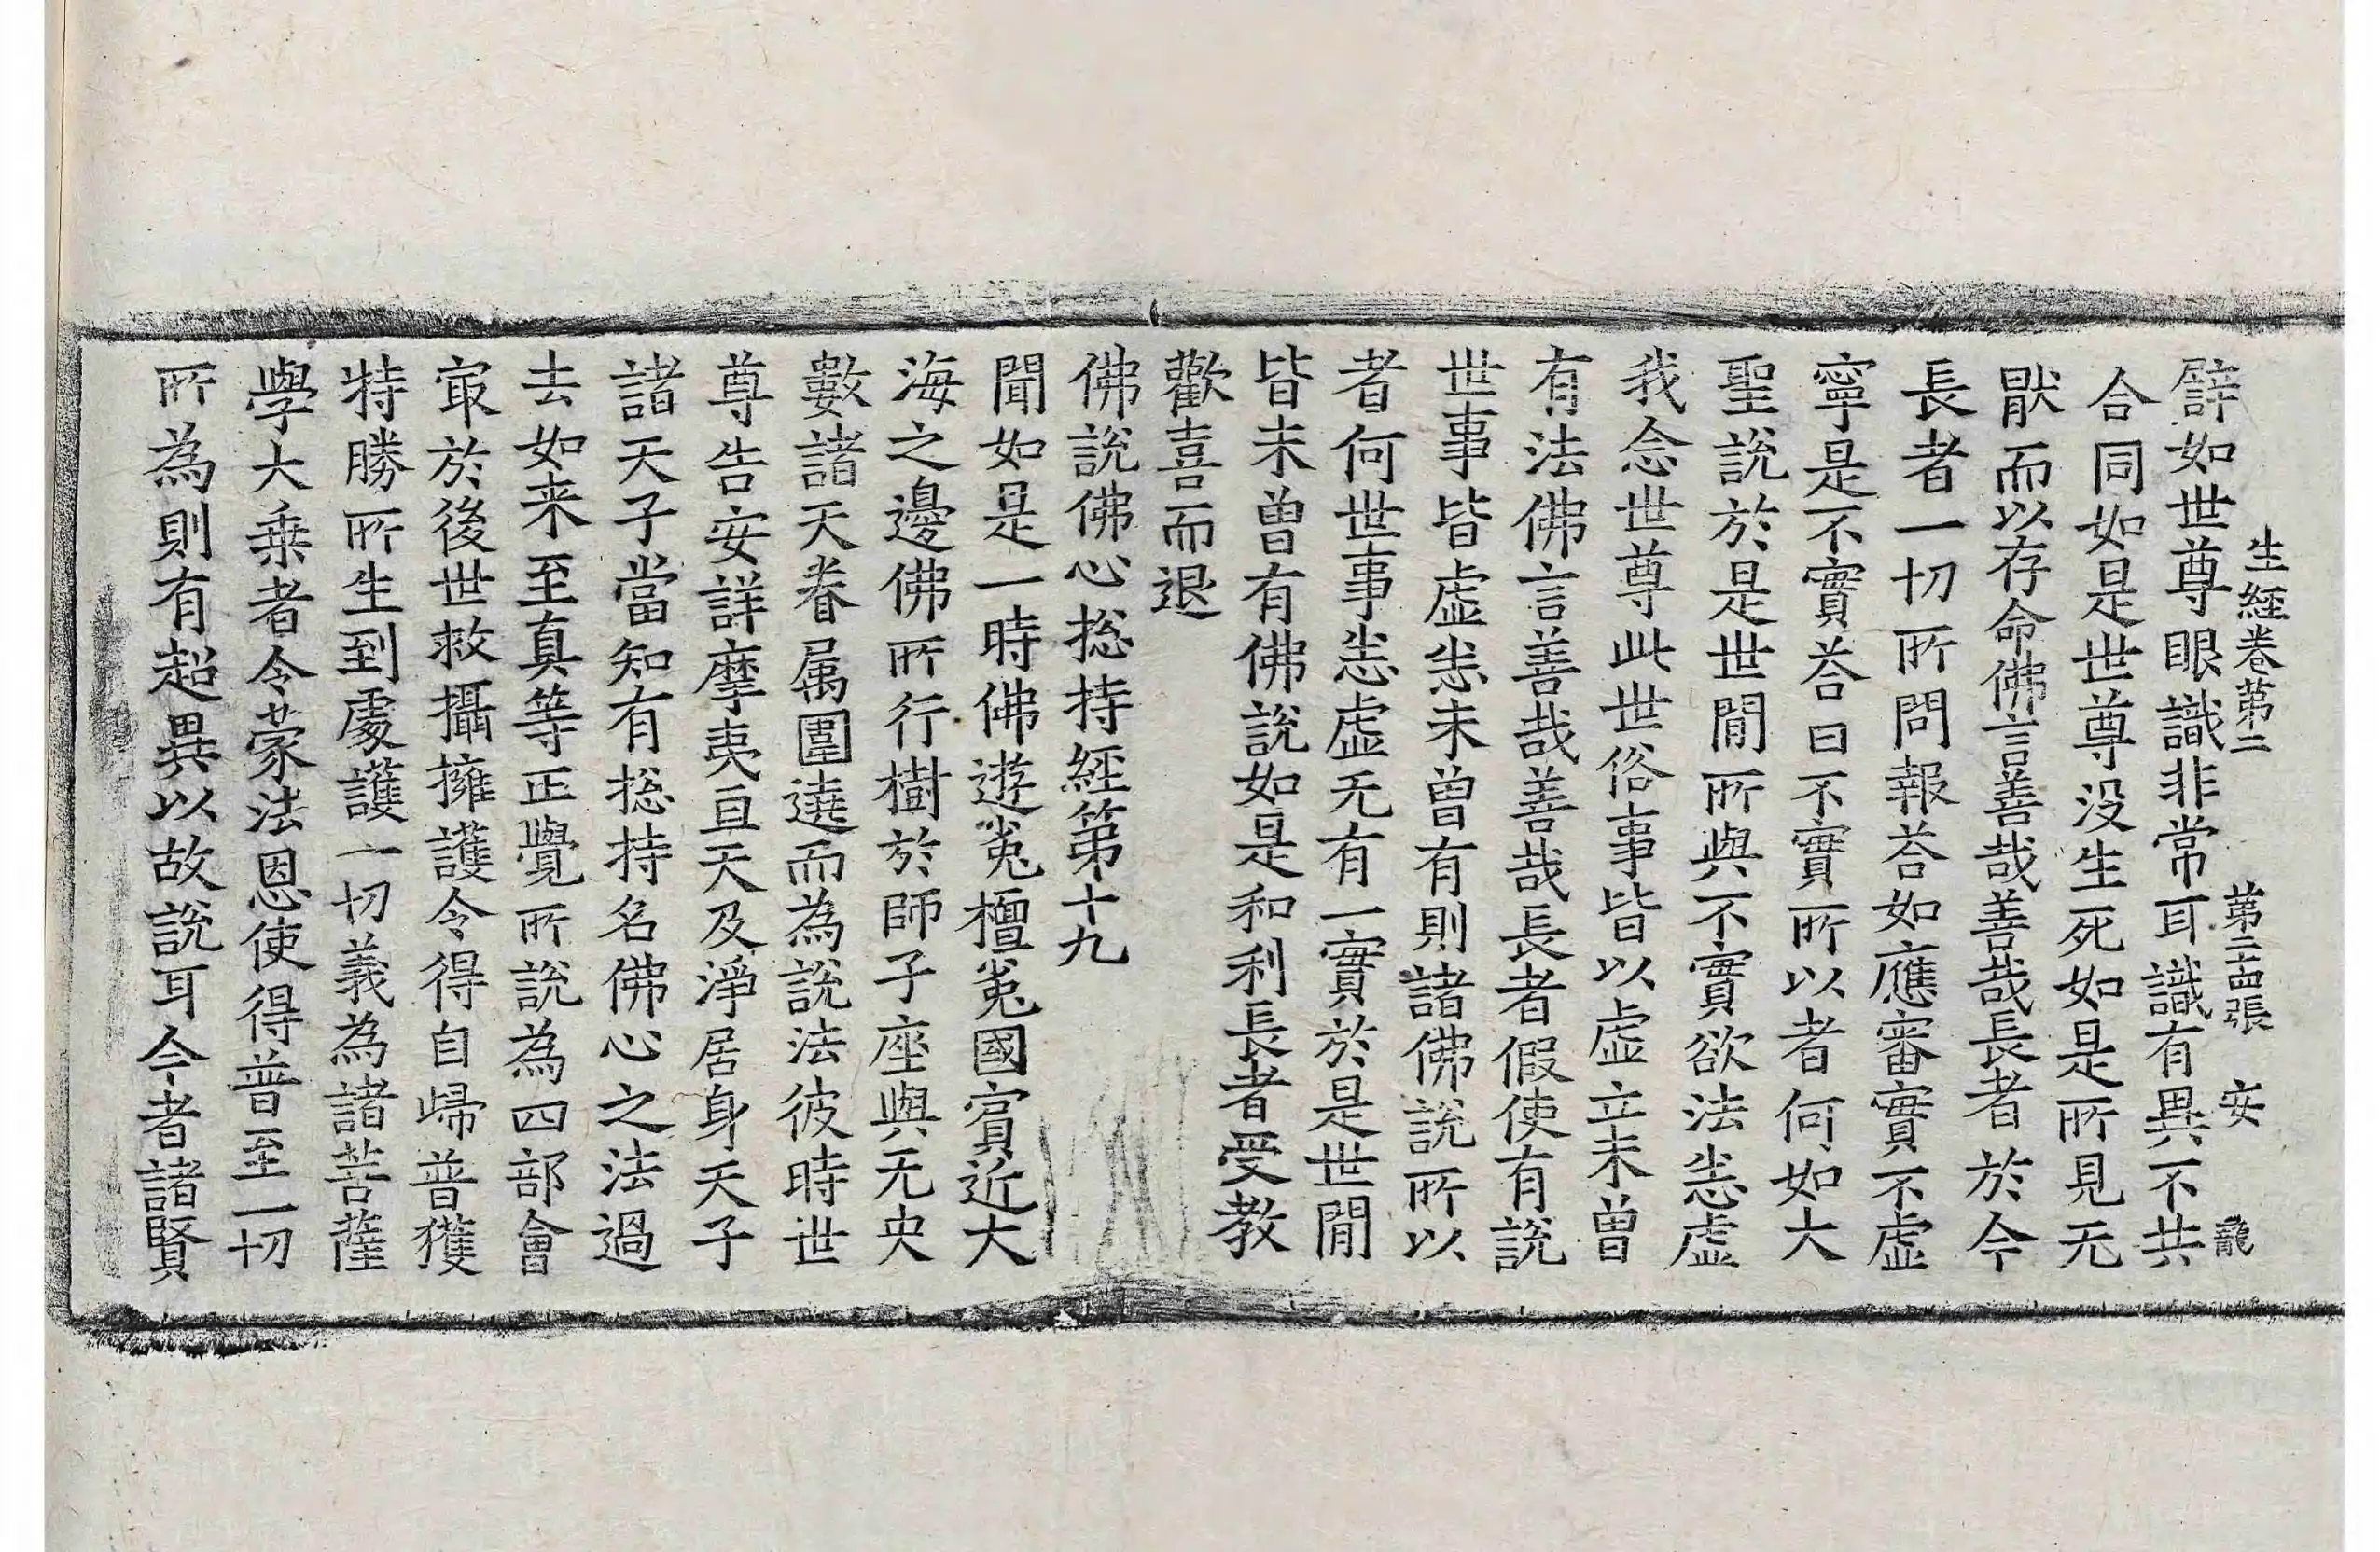 生經卷第二 第二十四張 安 龍
譬如世尊眼識非常耳識有異不共
合同如是世尊没生死如是所見无
猒而以存命佛言善哉善哉長者於今
長者一切所問報荅如應審實不虛
寧是不實荅曰不實所以者何如大
聖說於是世間所與不實欲法恙虛
我念世尊此世俗事皆以虛立未曾
有法佛言善哉善哉長者假使有說
世事皆虛恙未曾有則諸佛說所以
者何世事恙虛无有一實於是世間
皆未曾有佛說如是和利長者受教
歡喜而退
佛說佛心捴持經第十九
聞如是一時佛遊㝹檀㝹國賔近大
海之邊佛所行樹於師子座與无央
數諸天眷属圍遶而為說法彼時世
尊告安詳摩夷亘天及淨居身天子
諸天子當知有捴持名佛心之法過
去如来至真等正覺所說為四部會
㝡於後世救攝擁護令得自歸普獲
特勝所生到處護一切義為諸菩薩
學大乗者令蒙法恩使得普至一切
所為則有超異以故說耳今者諸賢